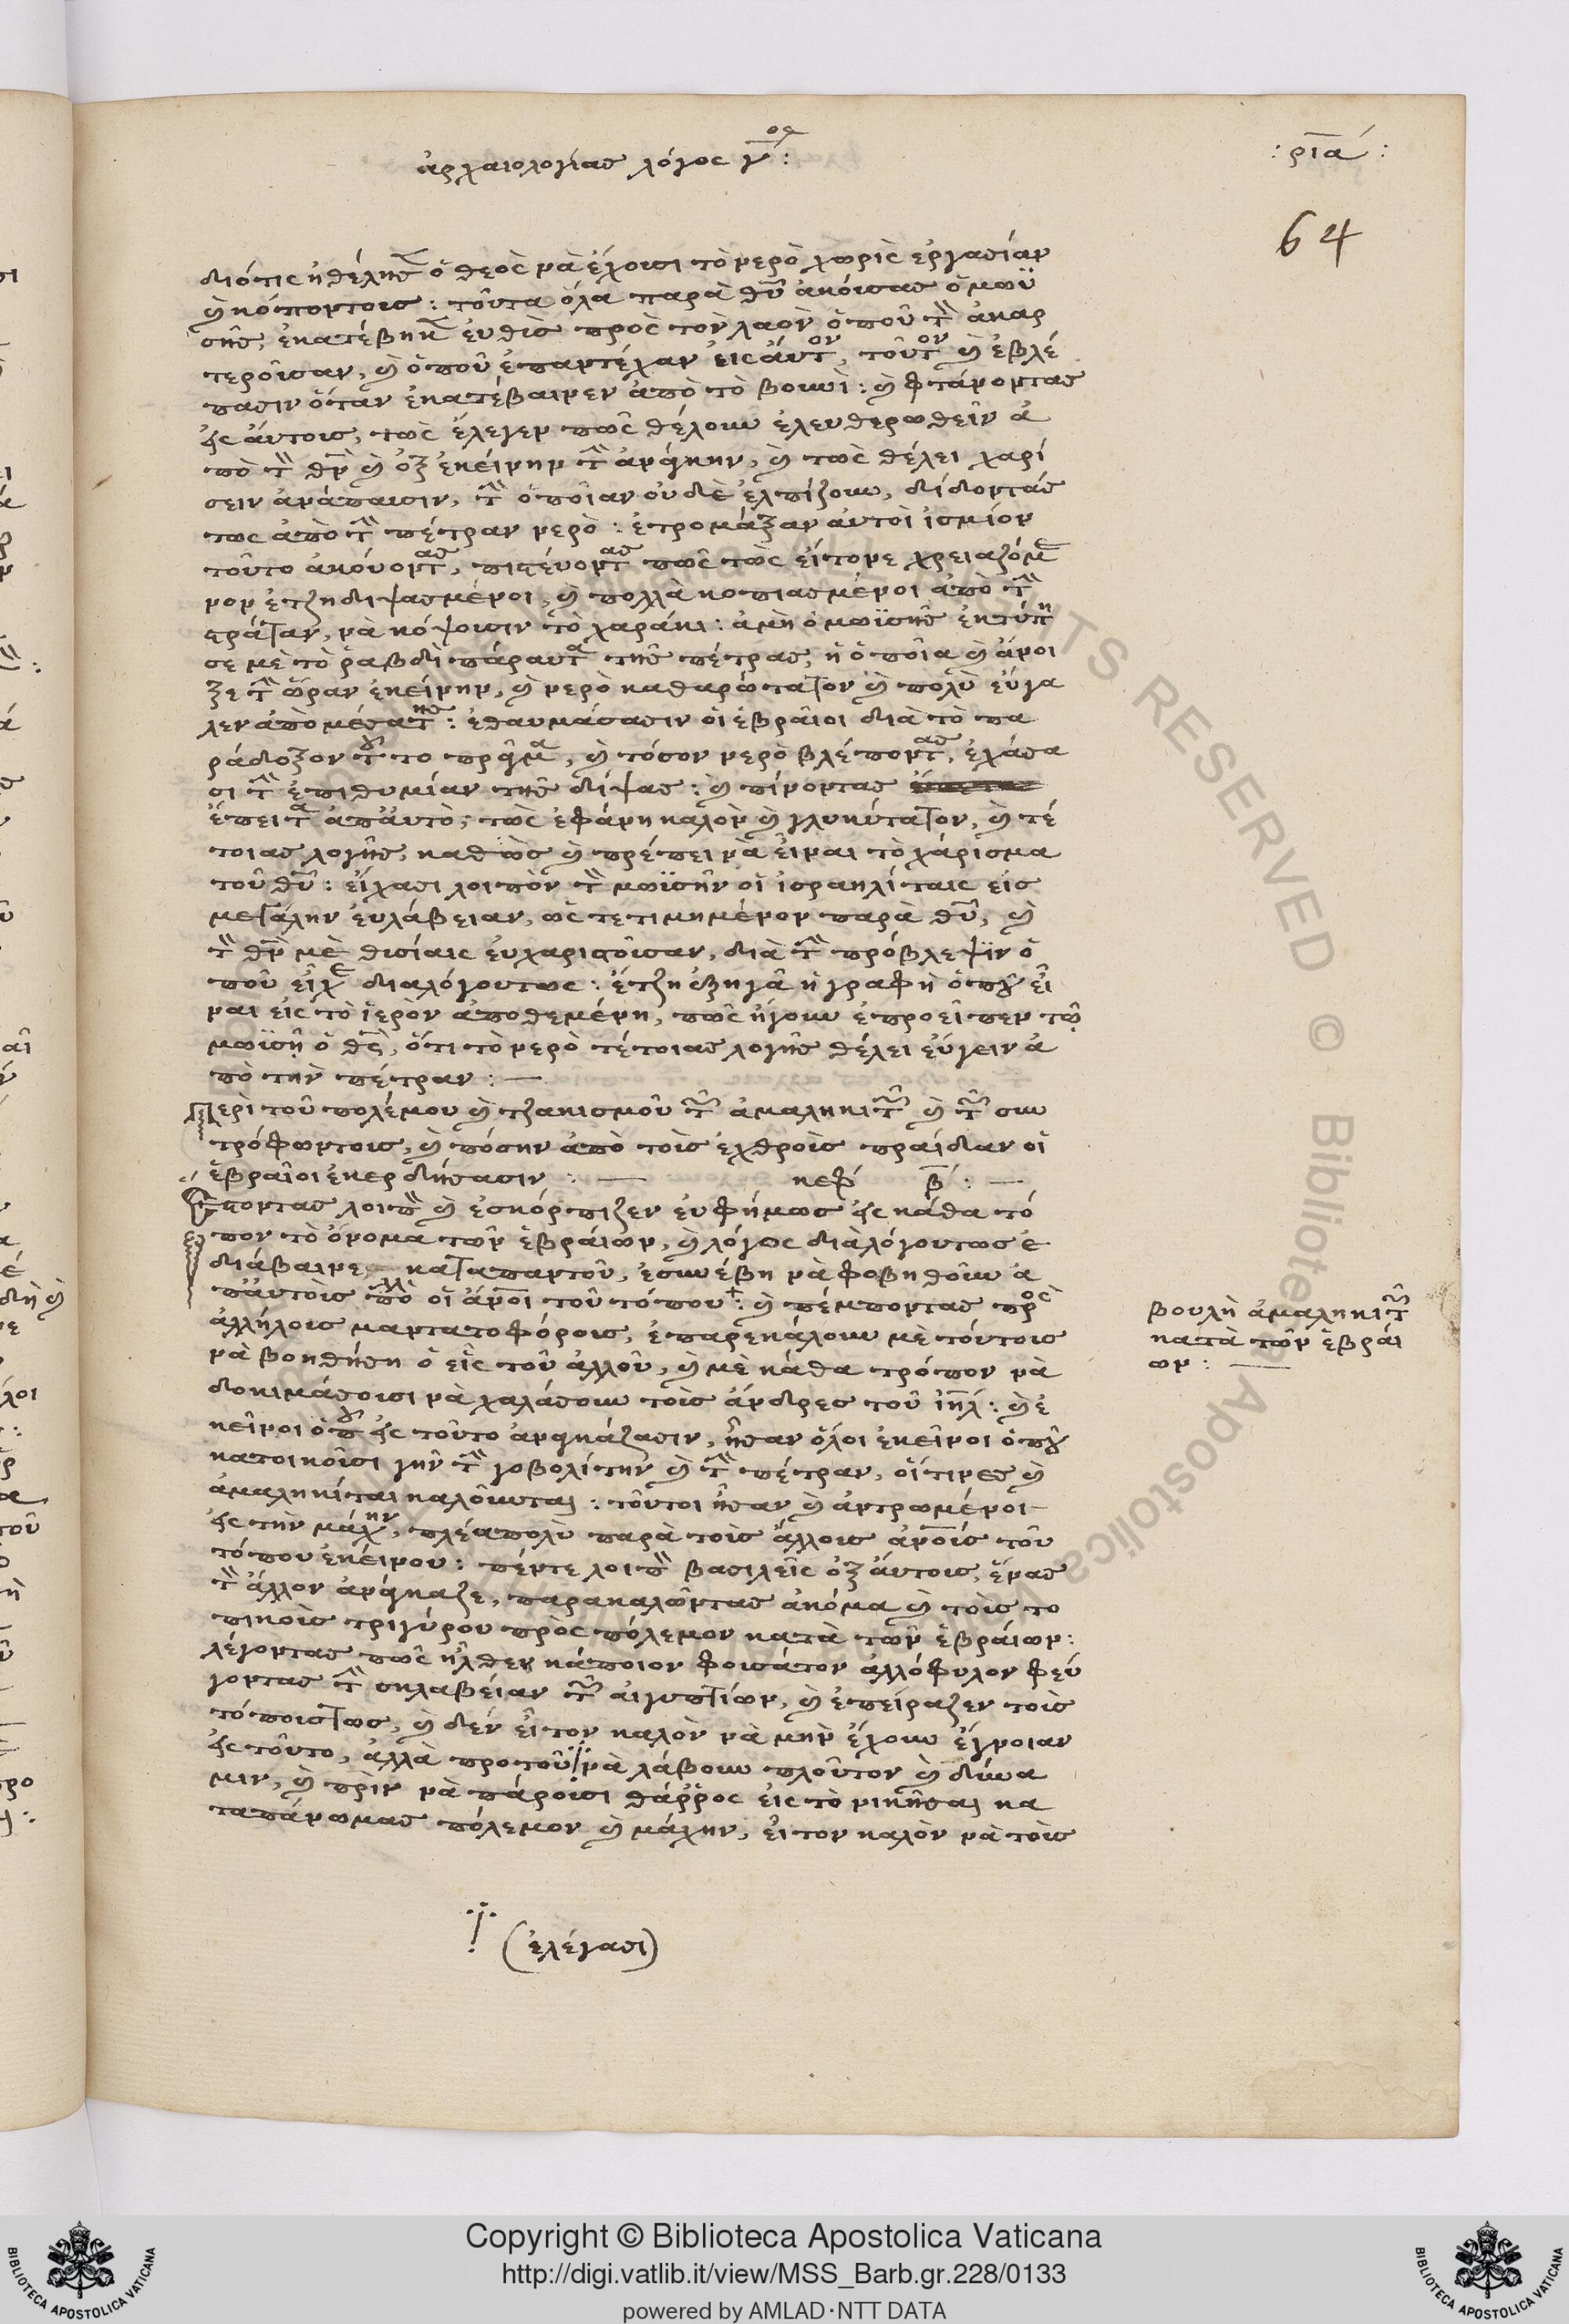 ἀρχαιολογίας λόγος γ^ος:
: ρια :
64
διότις ἠθέλησ ὁ θεὸς νὰ ἔχουσι τὸ νερὸ χωρὶς ἐργασίαν
ἐκατέβηκ εὐθὺς πρὸς τὸν λαὸν ὁποῦ τὸν ἀκαρ
τεροῦσαν, καὶ ὁποῦ ἐπαντέχαν εἰς αὐτὸν, τοῦτον καὶ ἐβλέ
πασιν ὅταν ἐκατέβαινεν ἀπὸ τὸ βουνὶ: καὶ φτάνοντας
εἰς αὐτους, τῶς ἔλεγεν πῶς θέλουν ἐλευθερωθεῖν ἀ
πὸ τὸν θν καὶ ἐξ ἐκείνην τὴν ἀνάγκην, καὶ τῶς θέλει χαρί
σειν ἀνάπαυσιν, τὴν ὁποῖαν οὐδὲ ἐλπίζουν, δίδοντάς
τως ἀπὸ τὴν πέτραν νερὸ: ἐτρομάξαν αὐτοὶ
τοῦτο ἀκούοντας, πιστέυοντας πῶς τῶς εἴτονε χρειαζόμε
νον ἔτζη διψασμένοι, καὶ πολλὰ κοπιασμένοι ἀπὸ τὴν
στράταν, νὰ κόψουσιν τὸ χαράκι: ἀμὴ ὁ μωϊσῆς ἐκτύπη
σε μὲ τὸ ῥαβδὶ πάραυτα τῆς πέτρας, ἡ ὁποῖα καὶ ἄνοι
ξε τὴν ὥραν ἐκείνην, καὶ νερὸ καθαρώτατον καὶ πολὺ εὔγα
λεν ἀπὸ μέσα της: ἐθαυμάσασιν οἱ ἑβραῖοι διὰ τὸ πα
ράδοξον τοῦτο πρᾶγμα, καὶ τόσον νερὸ βλέποντας, ἐχάσα
σι τὴν ἐπιθυμίαν τῆς δίψας: καὶ πίνοντας
ἔπειτα ἀπ αὐτὸ, τῶς ἐφάνη καλὸν καὶ γλυκύτατον, καὶ τέ
τοιας λογῆς, καθὼς καὶ πρέπει νὰ εἶναι τὸ χάρισμα
τοῦ θῦ: εἴχασι λοιπὸν τὸν μωϊσῆν οἱ ἰσραηλίταις εἰς
μεγάλην εὐλάβειαν, ὡς τετιμημένον παρὰ θῦ, καὶ
τὸν θν μὲ θυσίαις εὐχαριστοῦσαν, διὰ τὴν πρόβλεψιν ὁ
ποῦ εἶχε διαλόγουτως: ἔτζη ἐξηγᾶ ἡ γραφὴ ὁποῦ εἶ
ναι εἰς τὸ ἱερὸν ἀποθεμένη, πῶς ἤγουν ἐπροεῖπεν τῷ
μωϊσῇ ὁ θς, ὅτι τὸ νερὸ τέτοιας λογῆς θέλει εὔγειν ἀ
πὸ τὴν πέτραν: —
Περὶ τοῦ πολέμου καὶ τζακισμοῦ τῶν ἀμαληκιτῶν καὶ τῶν συν
τρόφωντους, καὶ πόσην ἀπὸ τοὺς ἐχθροὺς πραίδαν οἱ
ἑβραῖοι ἐκερδήσασιν : — κεφ β: —
Ἔστοντας λοιπὸν καὶ ἐσκόρπιζεν εὐφήμως εἰς κάθα τό
πον τὸ ὄνομα τῶν ἑβραίων, καὶ λόγος διαλόγουτως ἐ
διάβαινε καταπαντοῦ, ἐσυνέβη νὰ φοβηθοῦν ἀ
παὐτοὺς πολλὰ οἱ ἄνοι τοῦ τόπου: καὶ πέμποντας πρὸς
ἀλλήλους μαντατοφόρους, ἐπαρεκάλουν μὲ τούτους
νὰ βοηθήση ὁ εἷς τοῦ ἀλλοῦ, καὶ μὲ κάθα τρόπον νὰ
δοκιμάσουσι νὰ χαλάσουν τοὺς ἄνδρες τοῦ ἰηλ: καὶ ἐ
κεῖνοι ὁποῦ εἰς τοῦτο ἀναγκάζασιν, ἦσαν ὅλοι ἐκεῖνοι ὁποῦ
κατοικοῦσι γῆν τὴν γοβολίτην καὶ τὴν πέτραν, οἵτινες καὶ
ἀμαληκίται καλοῦνται: τοῦτοι ἦσαν καὶ ἀντρωμένοι
εἰς τὴν μάχην, πλέα πολὺ παρὰ τοὺς ἄλλους ἀνους τοῦ
τόπου ἐκείνου: πέντε λοιπὸν βασιλεῖς ἐξ αὐτους, ἕνας
τὸν ἄλλον ἀνάγκαζε, παρακαλῶντας ἀκόμα καὶ τοὺς το
πικοὺς τριγύρου πρὸς πόλεμον κατὰ τῶν ἑβραίων:
λέγοντας πῶς ἦλθεν κάποιον φουσάτον ἀλλόφυλον φεύ
γοντας τὴν σκλαβείαν τῶν αἰγυπτίων, καὶ ἐπείραζεν τοὺς
τόπουςτως, καὶ δὲν εἶτον καλὸν νὰ μὴν ἔχουν ἔγνοιαν
εἰς τοῦτο, ἀλλὰ προτοῦ νὰ λάβουν πλοῦτον καὶ δύνα
μιν, καὶ πρὶν νὰ πάρουσι θάῤῥος εἰς τὸ νικῆσαι κα
ταπάνωμας πόλεμον καὶ μάχην, εἶτον καλὸν νὰ τοὺς
βουλὴ ἀμαληκιτῶν
κατὰ τῶν ἑβραί
ων: —
(ἐλέγασι)
Copyright © Biblioteca Apostolica Vaticana
http://digi.vatlib.it/view/MSS_Barb.gr.228/0133
powered by AMLAD·NTT DATA
BIBLIOTECA APOSTOLICA VATICANA
BIBLIOTECA APOSTOLICA VATICANA